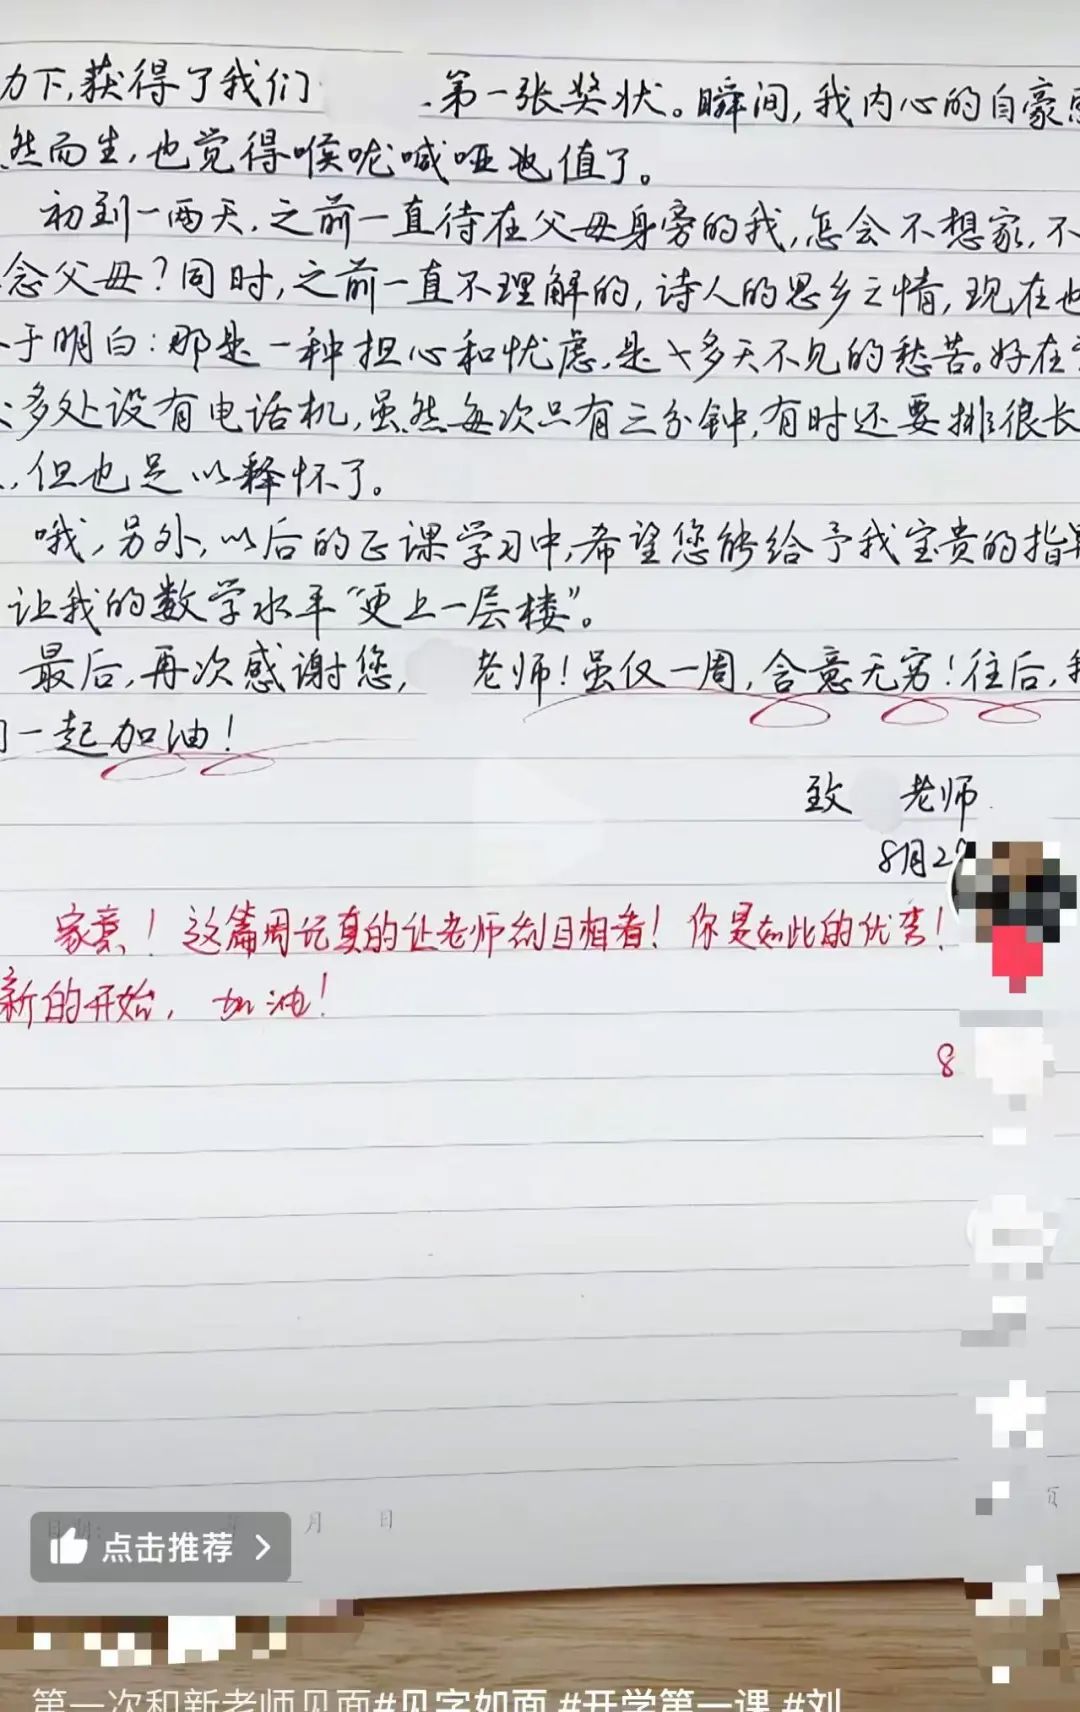 力下,获得了我们 第一张奖状。瞬间,我内心的自豪感
然而生,也觉得喉咙喊哑也值了。
初到一两天,之前一直待在父母身旁的我,怎会不想家,不
念父母?同时,之前一直不理解的,诗人的思乡之情,现在也
于明白:那是一种担心和忧虑,是many多天不见的愁苦。好在
多处设有电话机,虽然每次只有三分钟,有时还要排很长
,但也足以释怀了。
哦,另外,以后的正课学习中,希望您能给予我宝贵的指
让我的数学水平“更上一层楼”。
最后,再次感谢您, 老师!虽仅一周,含意无穷!往后,我
们一起加油!
致 老师
8月2
家豪!这篇周记真的让老师刮目相看!你是如此的优秀!
新的开始,加油!
8
月 日
页
点击推荐 >
第一次和新老师见面#见字如面 #开学第一课 #刘